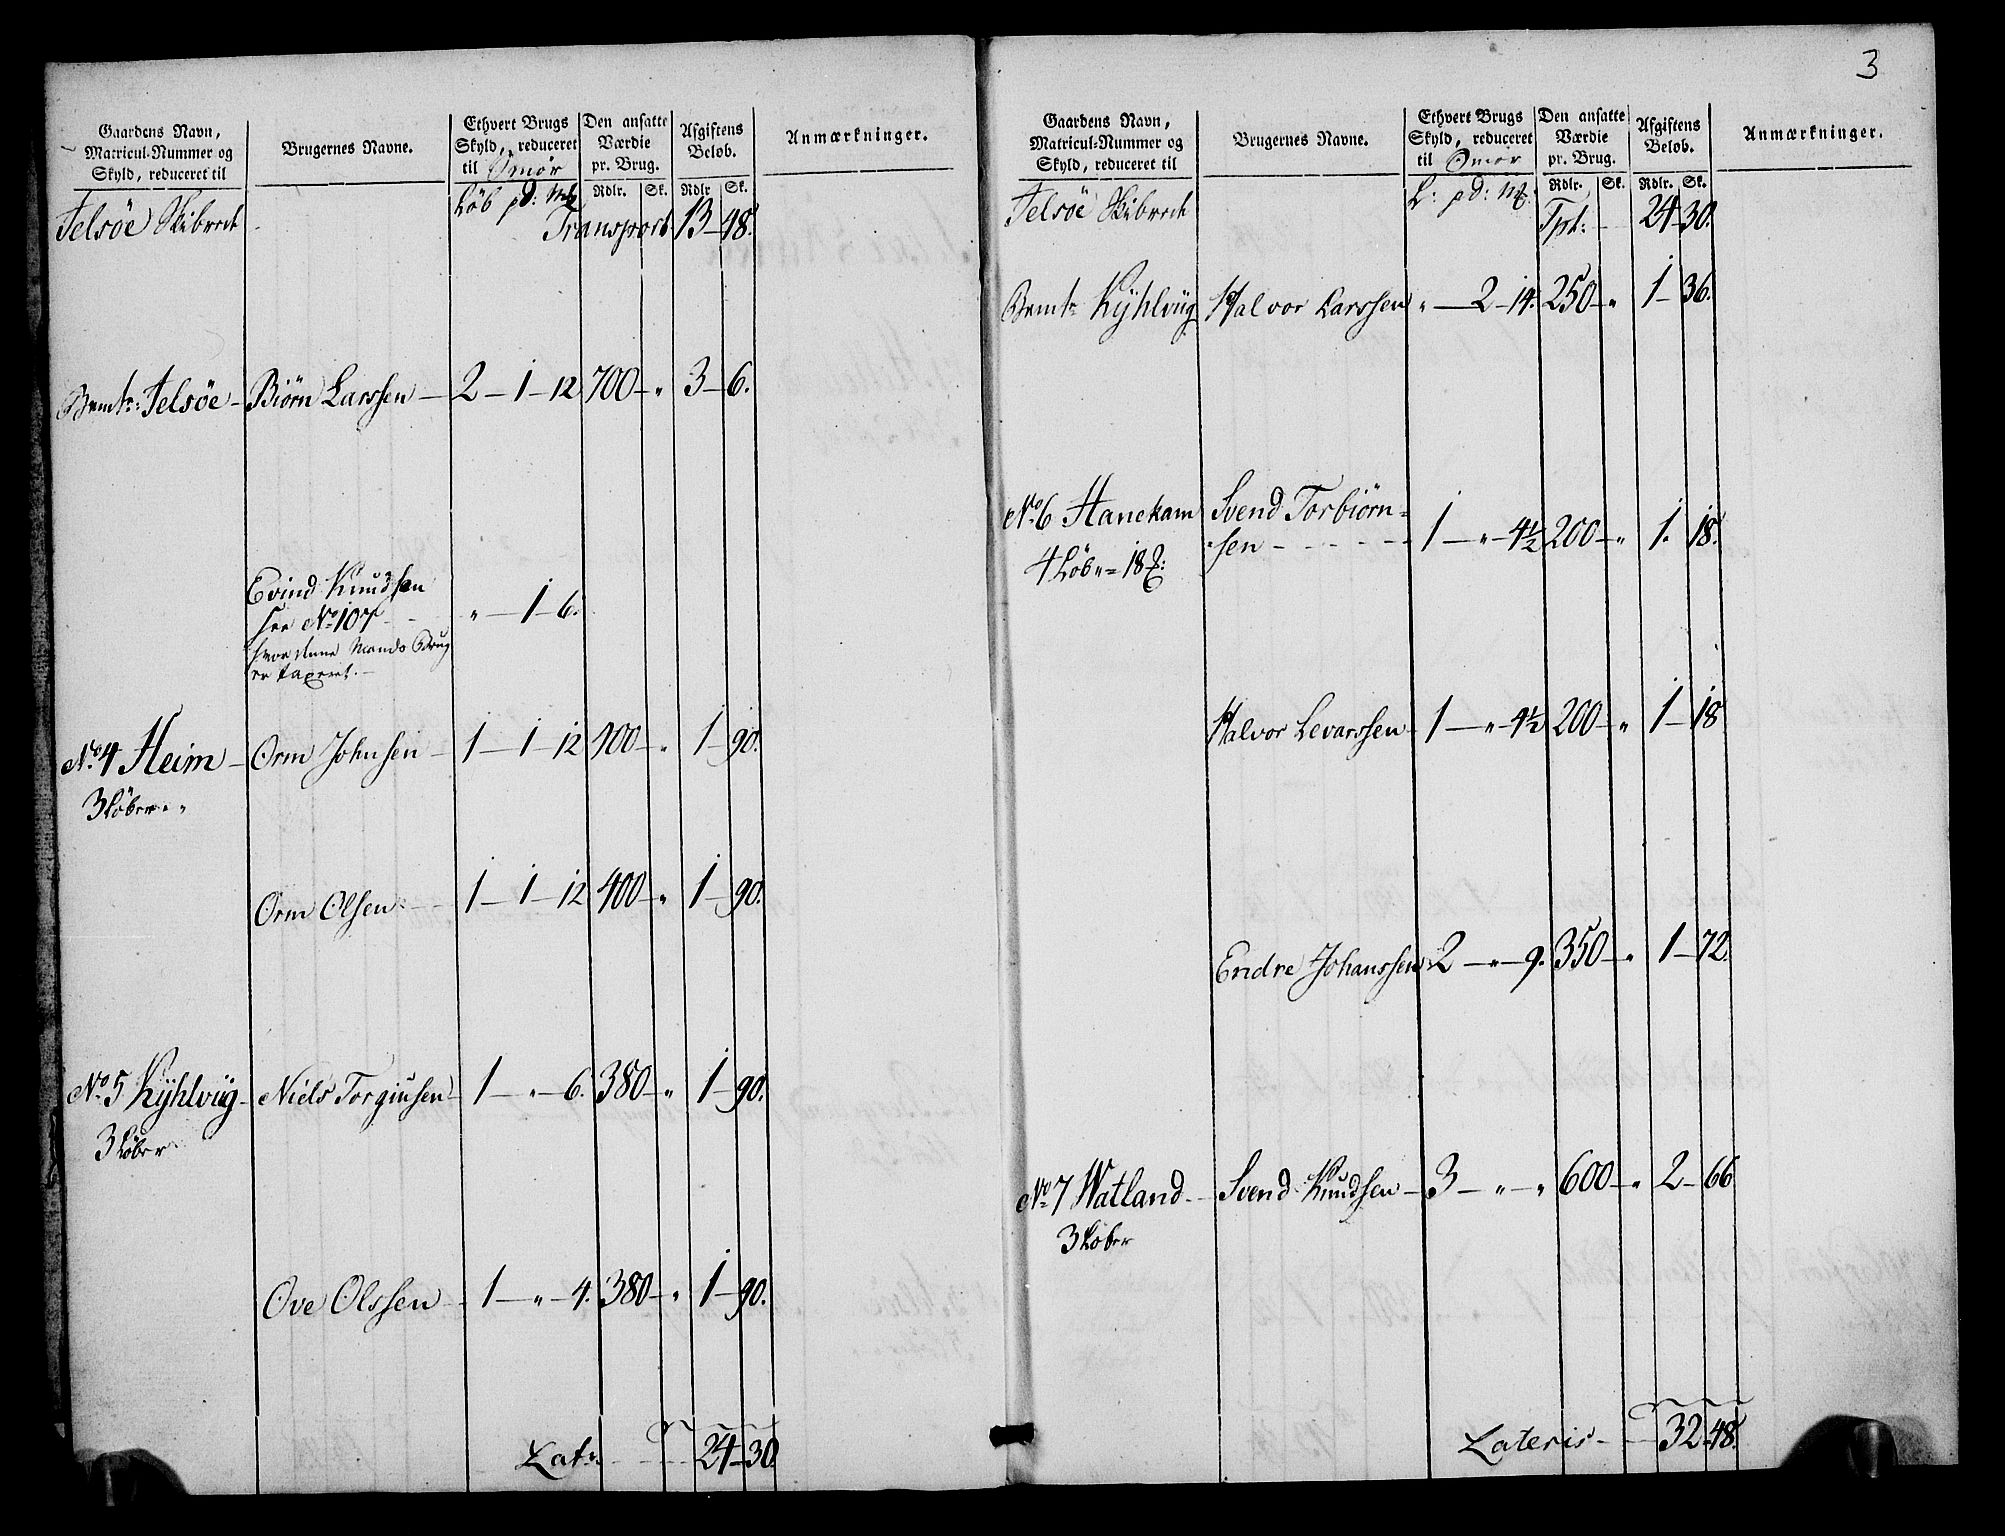 Gaardens Navn, Matricul-Nummer og Skyld, reduceret til
Brugernes Navne.
Ethvert Brugs Skyld, reduceret til Smør
Den ansatte Værdie pr. Brug.
Afgiftens Beløb.
Anmærkninger.
Løb pd: Mk
Rdlr. Sk. Rdlr. Sk.
Felsøe Skibrede Transport 13 - 48.
Bemte: Felsøe - Biørn Larssen - 2 - 1 - 12 700 - " 3 - 6.
Evind Knudssen " - 1 - 6.
see No 107
hvor denne Mands Brug
er taxeret. -
No 4 Heim - Orm Johnsen - 1 - 1 - 12 400 - " 1 - 90.
3 Løber " "
Orm Olsen 1 - 1 - 12 400 - " 1 - 90.
No 5 Kÿhlvüg - Niels Torgiusen - 1 - " - 6. 380 - " 1 - 90.
3 Løber
Ove Olssen - 1 - " - 4. 380 - " 1 - 90.
Lats. 24 - 30
3
Gaardens Navn, Matricul-Nummer og Skyld, reduceret til
Brugernes Navne.
Ethvert Brugs Skyld, reduceret til Smør
Den ansatte Værdie pr. Brug.
Afgiftens Beløb.
Anmærkninger.
L: pd: Mk:
Rdlr. Sk. Rdlr. Sk.
Felsøe Skibrede Tpt: 24 - 30.
Bemte Kÿhlvüg Halvor Larssen " - 2 - 14. 250 - " 1 - 36.
No 6 Hanekam Svend Torbiørn=
sen 1 - " - 4½ 200 - " 1. 18.
4 Løb " = 18
Halvor Levarssen - 1 - " - 4½ 200 - " 1 - 18
Endre Johanssen 2 - " - 9. 350 - " 1 - 72.
No 7 Watland - Svend Knudsen - 3 - " - " 600 - " 2 - 66
3 Løber
Lateris - 32 - 48.